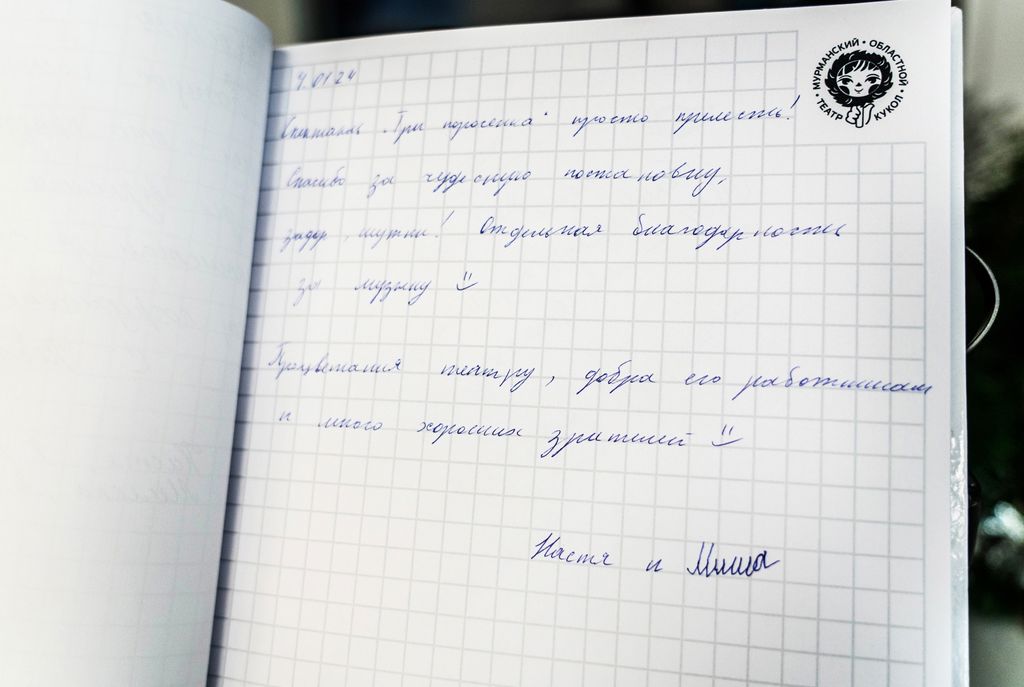 4.01.24
МУРМАНСКИЙ • ОБЛАСТНОЙ • ТЕАТР КУКОЛ •
Спектакль "Три поросенка" просто прелесть!
Спасибо за чудесную постановку,
задор, шутки! Отдельная благодарность
за музыку
Процветания театру, добра его работникам
и много хороших зрителей
Настя и Миша